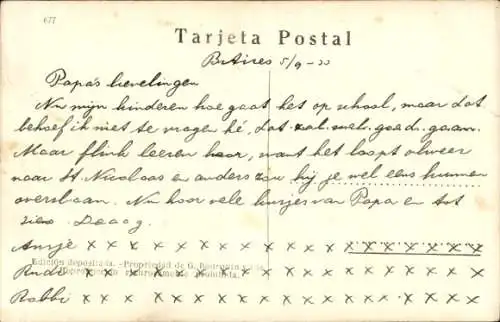 677
Tarjeta Postal
BAires 5/9-33
Papa's lievelingen
Nu mijn kinderen hoe gaat het op school, maar dat
behoef ik niet te vragen hé, dat zal wel goed gaan.
Maar flink leeren hoor, want het loopt alweer
naar St. Nicolaas en anders zou hij je wel eens kunnen
overslaan. Nu hoor vele kusjes van Papa en tot
ziens Daaag
Ansje x x x x x x x x x x x x x x x x x
Edición depositada. - Propriedad de G. Bourquin
Rudi x x x x x x x x x x x x x x x x x
Reproducción rigurosamente prohibida.
Robbi x x x x x x x x x x x x x x x x x